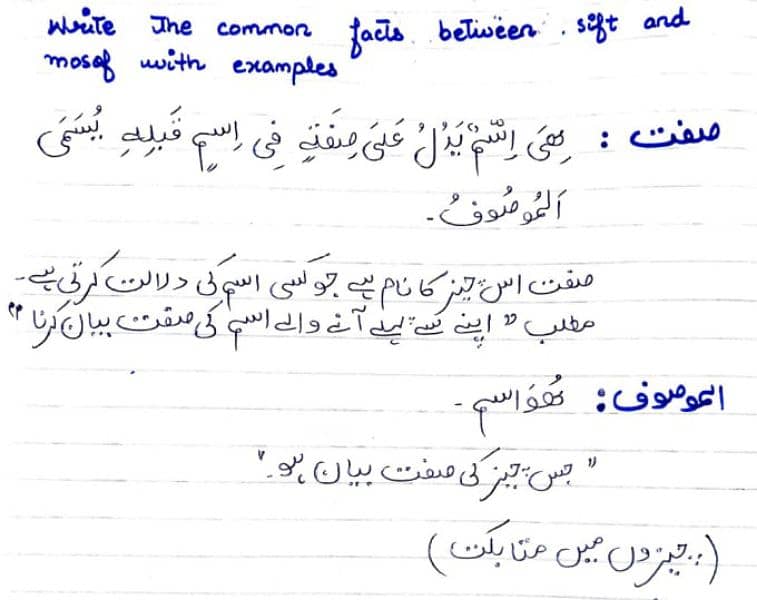 Write The common facts between . sift and
mosof with examples
صفت : ھِیَ اِسْمٌ یَدُلُ عَلیَ صِفَتہٍ فِی اِسِمٍ قَبلِہِ یُسَمَی
اَلمُوصُوفُ۔
صفت اس چیز کا نام ہے جو کسی اسم کی دلالت کرتی ہے۔
مطلب " اپنے سے پہلے آنے والے اسم کی صفت بیان کرنا "
الموصوف : ھُوَ اسم ۔
" جس چیز کی صفت بیان ہو۔"
(چیزوں میں متابکت)